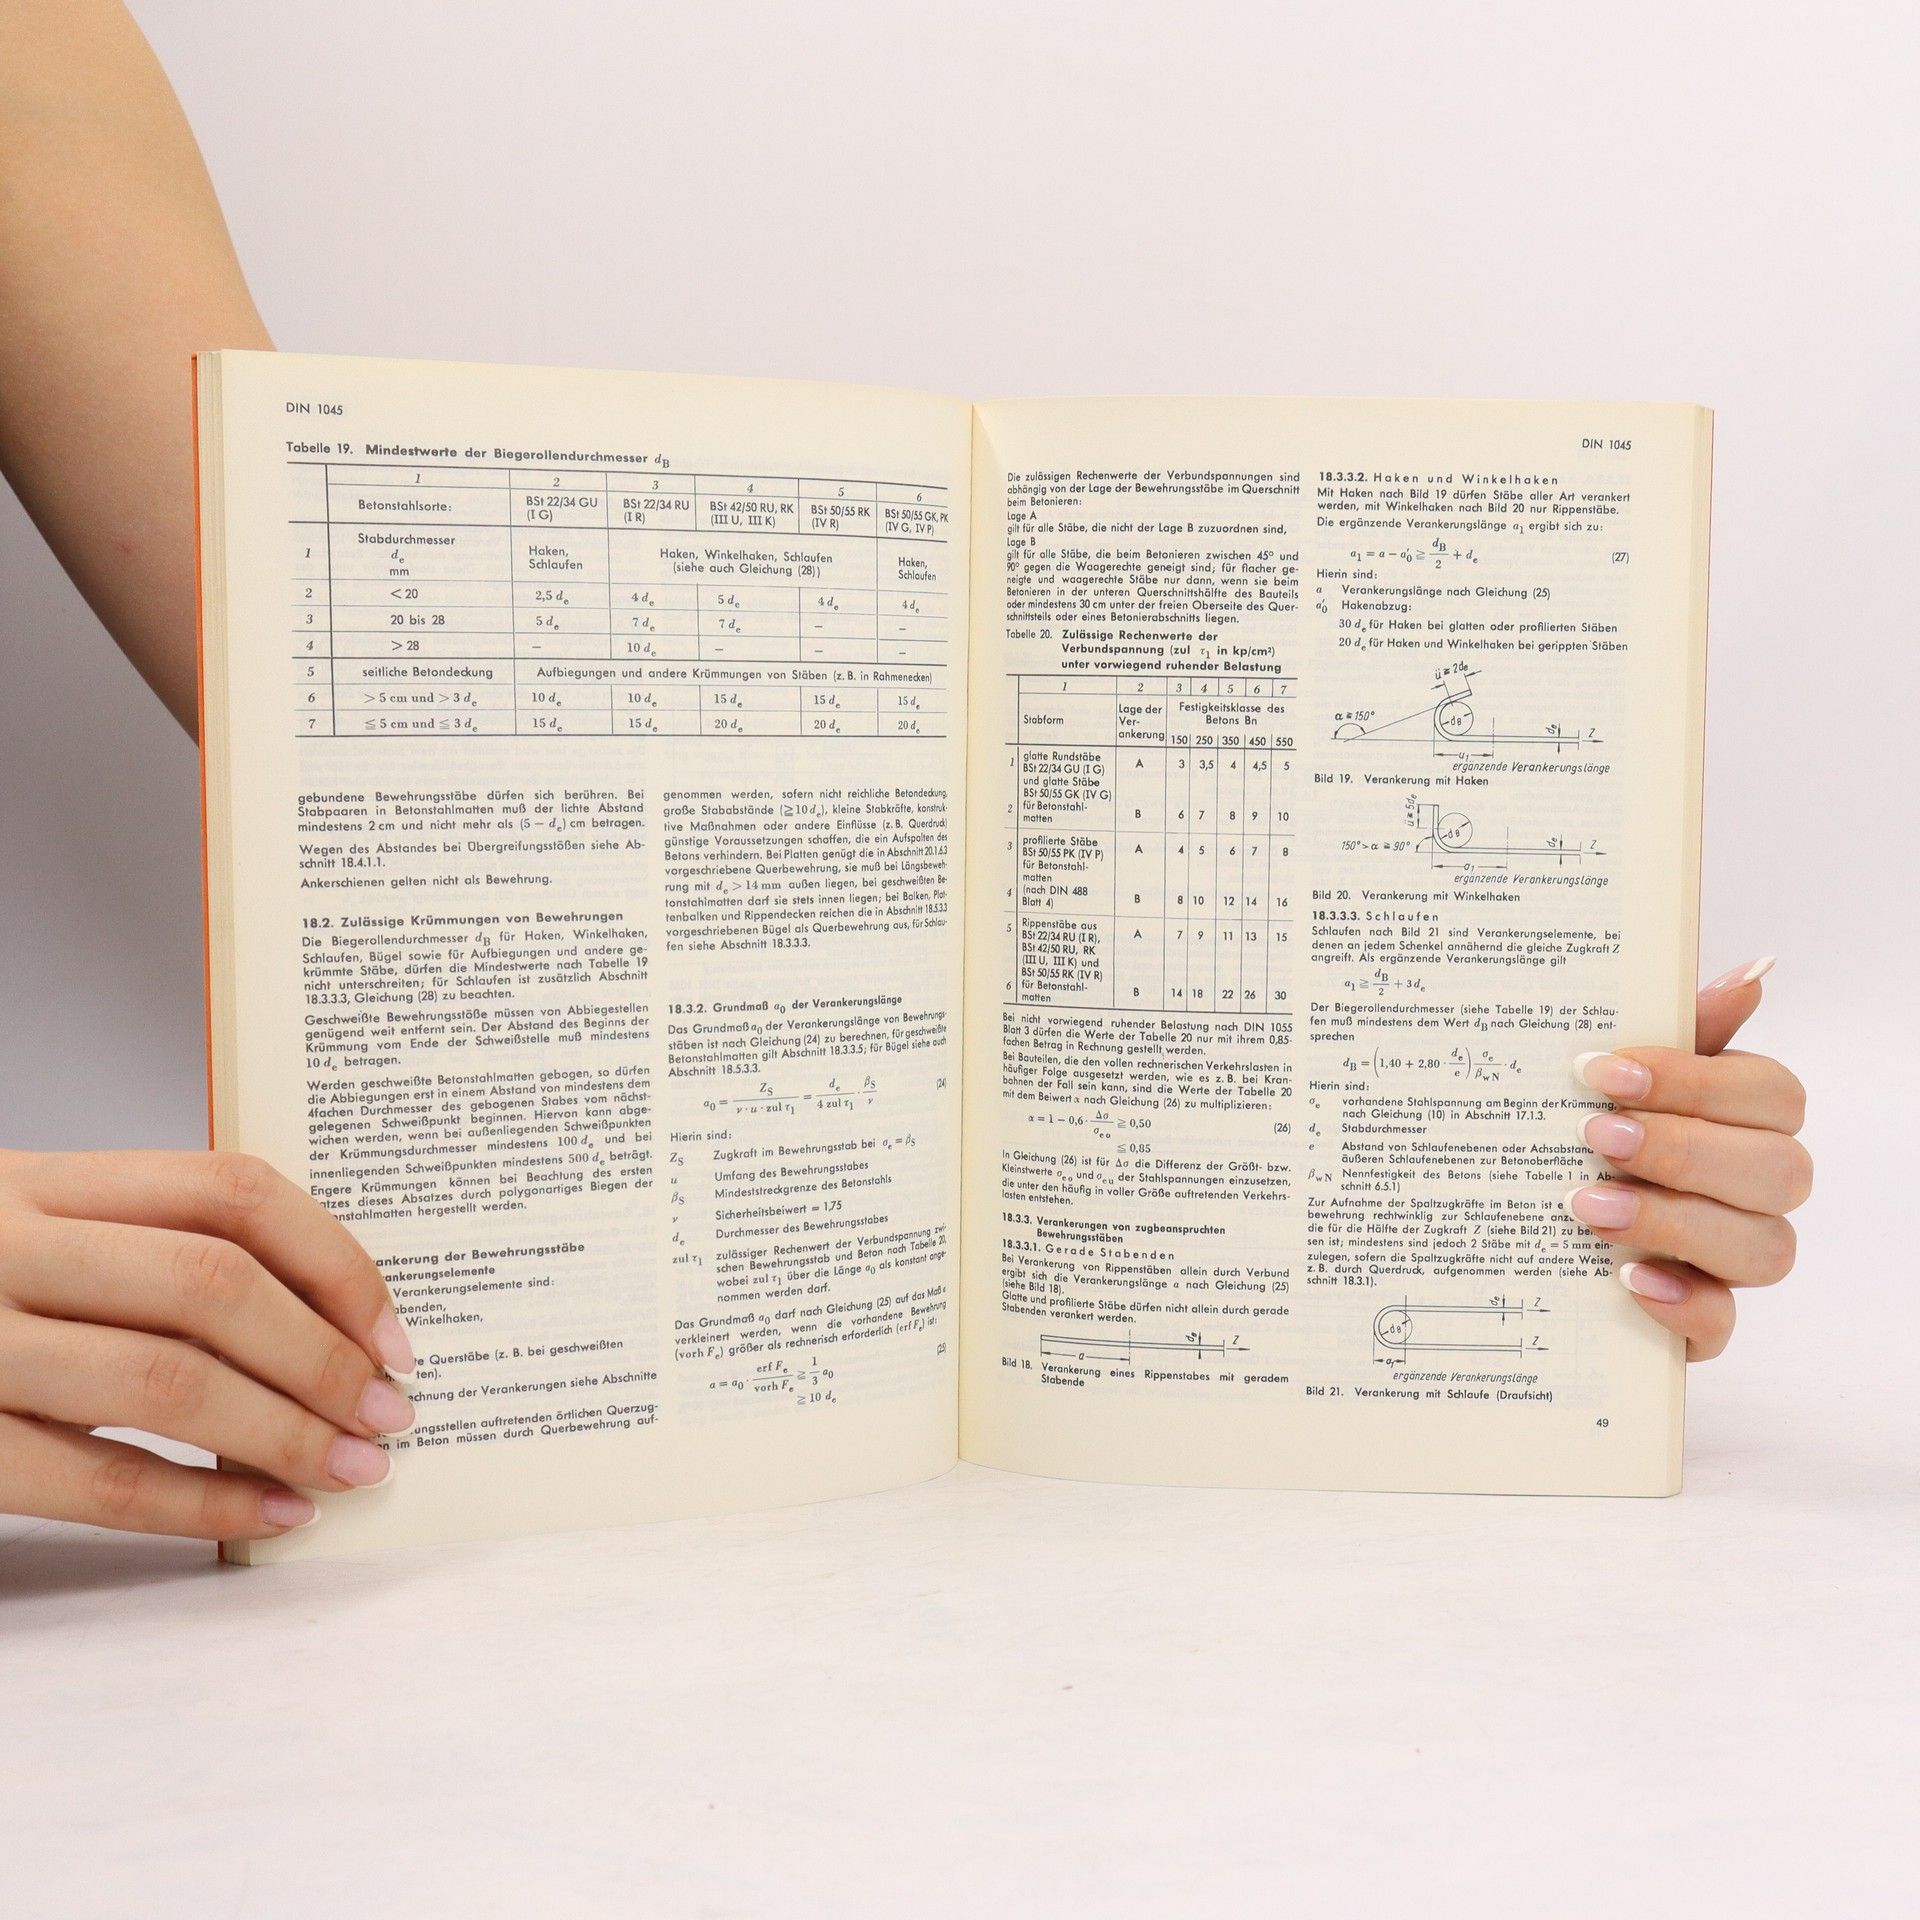 DIN 1045
Tabelle 19. Mindestwerte der Biegerollendurchmesser dB
1 2 3 4 5 6
Betonstahlsorte: BSt 22/34 GU (I G) BSt 22/34 RU (I R) BSt 42/50 RU, RK (III U, III K) BSt 50/55 RK (IV R) BSt 50/55 GK, PK (IV G, IV P)
1 Stabdurchmesser de mm Haken, Schlaufen Haken, Winkelhaken, Schlaufen (siehe auch Gleichung (28)) Haken, Schlaufen
2 < 20 2,5 de 4 de 5 de 4 de 4 de
3 20 bis 28 5 de 7 de 7 de – –
4 > 28 – 10 de – – –
5 seitliche Betondeckung Aufbiegungen und andere Krümmungen von Stäben (z. B. in Rahmenecken)
6 > 5 cm und > 3 de 10 de 10 de 15 de 15 de 15 de
7 ≦ 5 cm und ≦ 3 de 15 de 15 de 20 de 20 de 20 de
gebundene Bewehrungsstäbe dürfen sich berühren. Bei
Stabpaaren in Betonstahlmatten muß der lichte Abstand
mindestens 2 cm und nicht mehr als (5 – de) cm betragen.
Wegen des Abstandes bei Übergreifungsstößen siehe Ab-
schnitt 18.4.1.1.
Ankerschienen gelten nicht als Bewehrung.
18.2. Zulässige Krümmungen von Bewehrungen
Die Biegerollendurchmesser dB für Haken, Winkelhaken,
Schlaufen, Bügel sowie für Aufbiegungen und andere ge-
krümmte Stäbe, dürfen die Mindestwerte nach Tabelle 19
nicht unterschreiten; für Schlaufen ist zusätzlich Abschnitt
18.3.3.3, Gleichung (28) zu beachten.
Geschweißte Bewehrungsstöße müssen von Abbiegestellen
genügend weit entfernt sein. Der Abstand des Beginns der
Krümmung vom Ende der Schweißstelle muß mindestens
10 de betragen.
Werden geschweißte Betonstahlmatten gebogen, so dürfen
die Abbiegungen erst in einem Abstand von mindestens dem
4fachen Durchmesser des gebogenen Stabes vom nächst-
gelegenen Schweißpunkt beginnen. Hiervon kann abge-
wichen werden, wenn bei außenliegenden Schweißpunkten
der Krümmungsdurchmesser mindestens 100 de und bei
innenliegenden Schweißpunkten mindestens 500 de beträgt.
Engere Krümmungen können bei Beachtung des ersten
atzes dieses Absatzes durch polygonartiges Biegen der
nstahlmatten hergestellt werden.
ankerung der Bewehrungsstäbe
ankerungselemente
Verankerungselemente sind:
abenden,
Winkelhaken,
te Querstäbe (z. B. bei geschweißten
ten).
echnung der Verankerungen siehe Abschnitte
ungsstellen auftretenden örtlichen Querzug-
en im Beton müssen durch Querbewehrung auf-
genommen werden, sofern nicht reichliche Betondeckung,
große Stababstände (≧ 10 de), kleine Stabkräfte, konstruk-
tive Maßnahmen oder andere Einflüsse (z. B. Querdruck)
günstige Voraussetzungen schaffen, die ein Aufspalten des
Betons verhindern. Bei Platten genügt die in Abschnitt 20.1.6.3
vorgeschriebene Querbewehrung, sie muß bei Längsbeweh-
rung mit de > 14 mm außen liegen, bei geschweißten Be-
tonstahlmatten darf sie stets innen liegen; bei Balken, Plat-
tenbalken und Rippendecken reichen die in Abschnitt 18.5.3.3
vorgeschriebenen Bügel als Querbewehrung aus, für Schlau-
fen siehe Abschnitt 18.3.3.3.
18.3.2. Grundmaß a0 der Verankerungslänge
Das Grundmaß a0 der Verankerungslänge von Bewehrungs-
stäben ist nach Gleichung (24) zu berechnen, für geschweißte
Betonstahlmatten gilt Abschnitt 18.3.3.5; für Bügel siehe auch
Abschnitt 18.5.3.3.
a0 = ZS / (ν · u · zul τ1) = de / (4 zul τ1) · βS / ν (24)
Hierin sind:
ZS Zugkraft im Bewehrungsstab bei σe = βS
u Umfang des Bewehrungsstabes
βS Mindeststreckgrenze des Betonstahls
ν Sicherheitsbeiwert = 1,75
de Durchmesser des Bewehrungsstabes
zul τ1 zulässiger Rechenwert der Verbundspannung zwi-
schen Bewehrungsstab und Beton nach Tabelle 20,
wobei zul τ1 über die Länge a0 als konstant ange-
nommen werden darf.
Das Grundmaß a0 darf nach Gleichung (25) auf das Maß a
verkleinert werden, wenn die vorhandene Bewehrung
(vorh Fe) größer als rechnerisch erforderlich (erf Fe) ist:
a = a0 · erf Fe / vorh Fe ≧ 1/3 a0 (25)
≧ 10 de
DIN 1045
Die zulässigen Rechenwerte der Verbundspannungen sind
abhängig von der Lage der Bewehrungsstäbe im Querschnitt
beim Betonieren:
Lage A
gilt für alle Stäbe, die nicht der Lage B zuzuordnen sind,
Lage B
gilt für alle Stäbe, die beim Betonieren zwischen 45° und
90° gegen die Waagerechte geneigt sind; für flacher ge-
neigte und waagerechte Stäbe nur dann, wenn sie beim
Betonieren in der unteren Querschnittshälfte des Bauteils
oder mindestens 30 cm unter der freien Oberseite des Quer-
schnittsteils oder eines Betonierabschnitts liegen.
Tabelle 20. Zulässige Rechenwerte der
Verbundspannung (zul τ1 in kp/cm²)
unter vorwiegend ruhender Belastung
1 2 3 4 5 6 7
Stabform Lage der Ver- ankerung Festigkeitsklasse des Betons Bn
150 250 350 450 550
1 glatte Rundstäbe BSt 22/34 GU (I G) A 3 3,5 4 4,5 5
und glatte Stäbe
BSt 50/55 GK (IV G)
2 für Betonstahl- matten B 6 7 8 9 10
3 profilierte Stäbe BSt 50/55 PK (IV P) A 4 5 6 7 8
für Betonstahl-
matten
4 (nach DIN 488 Blatt 4) B 8 10 12 14 16
5 Rippenstäbe aus BSt 22/34 RU (I R), A 7 9 11 13 15
BSt 42/50 RU, RK
(III U, III K) und
BSt 50/55 RK (IV R)
6 für Betonstahl- matten B 14 18 22 26 30
Bei nicht vorwiegend ruhender Belastung nach DIN 1055
Blatt 3 dürfen die Werte der Tabelle 20 nur mit ihrem 0,85-
fachen Betrag in Rechnung gestellt werden.
Bei Bauteilen, die den vollen rechnerischen Verkehrslasten in
häufiger Folge ausgesetzt werden, wie es z. B. bei Kran-
bahnen der Fall sein kann, sind die Werte der Tabelle 20
mit dem Beiwert α nach Gleichung (26) zu multiplizieren:
α = 1 – 0,6 · Δσ / σeo ≧ 0,50 (26)
≦ 0,85
In Gleichung (26) ist für Δσ die Differenz der Größt- bzw.
Kleinstwerte σeo und σeu der Stahlspannungen einzusetzen,
die unter den häufig in voller Größe auftretenden Verkehrs-
lasten entstehen.
18.3.3. Verankerungen von zugbeanspruchten
Bewehrungsstäben
18.3.3.1. Gerade Stabenden
Bei Verankerung von Rippenstäben allein durch Verbund
ergibt sich die Verankerungslänge a nach Gleichung (25)
(siehe Bild 18).
Glatte und profilierte Stäbe dürfen nicht allein durch gerade
Stabenden verankert werden.
a de Z
Bild 18. Verankerung eines Rippenstabes mit geradem
Stabende
18.3.3.2. Haken und Winkelhaken
Mit Haken nach Bild 19 dürfen Stäbe aller Art verankert
werden, mit Winkelhaken nach Bild 20 nur Rippenstäbe.
Die ergänzende Verankerungslänge a1 ergibt sich zu:
a1 = a – a'0 ≧ dB/2 + de (27)
Hierin sind:
a Verankerungslänge nach Gleichung (25)
a'0 Hakenabzug:
30 de für Haken bei glatten oder profilierten Stäben
20 de für Haken und Winkelhaken bei gerippten Stäben
ü ≧ 2de
α ≧ 150° dB de Z
a1
ergänzende Verankerungslänge
Bild 19. Verankerung mit Haken
ü ≧ 5de
150° > α ≧ 90° dB de Z
a1
ergänzende Verankerungslänge
Bild 20. Verankerung mit Winkelhaken
18.3.3.3. Schlaufen
Schlaufen nach Bild 21 sind Verankerungselemente, bei
denen an jedem Schenkel annähernd die gleiche Zugkraft Z
angreift. Als ergänzende Verankerungslänge gilt
a1 ≧ dB/2 + 3 de
Der Biegerollendurchmesser (siehe Tabelle 19) der Schlau-
fen muß mindestens dem Wert dB nach Gleichung (28) ent-
sprechen
dB = (1,40 + 2,80 · de/e) σe/βwN · de
Hierin sind:
σe vorhandene Stahlspannung am Beginn der Krümmung,
nach Gleichung (10) in Abschnitt 17.1.3.
de Stabdurchmesser
e Abstand von Schlaufenebenen oder Achsabstand
äußeren Schlaufenebenen zur Betonoberfläche
βwN Nennfestigkeit des Betons (siehe Tabelle 1 in Ab-
schnitt 6.5.1)
Zur Aufnahme der Spaltzugkräfte im Beton ist e
bewehrung rechtwinklig zur Schlaufenebene anz
die für die Hälfte der Zugkraft Z (siehe Bild 21) zu be
sen ist; mindestens sind jedoch 2 Stäbe mit de = 5 mm ein-
zulegen, sofern die Spaltzugkräfte nicht auf andere Weise,
z. B. durch Querdruck, aufgenommen werden (siehe Ab-
schnitt 18.3.1).
dB de Z
Z
a1
ergänzende Verankerungslänge
Bild 21. Verankerung mit Schlaufe (Draufsicht)
49